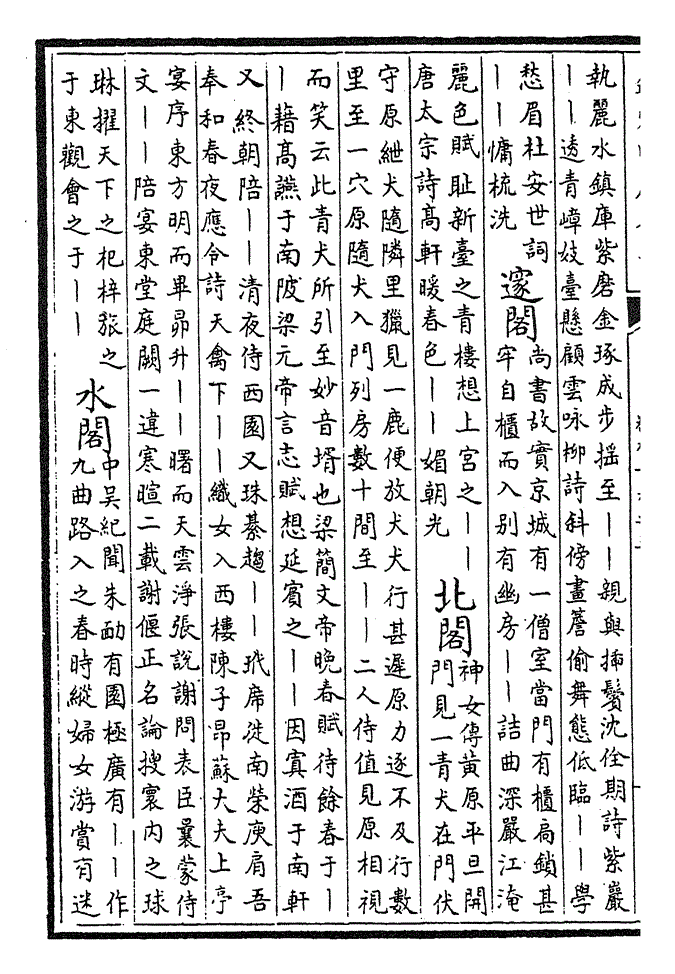 執麗水鎮庫紫磨金琢成步揺至丨丨親與揷鬢沈佺期詩紫巖
丨丨透青嶂妓臺懸顧雲咏柳詩斜傍畫簷偷舞態低臨丨丨學
愁眉杜安世詞
丨丨慵梳洗
邃閣
尚書故實京城有一僧室當門有櫃扃鎖甚
牢自櫃而入别有幽房丨丨詰曲深嚴江淹
麗色賦耻新臺之青樓想上宫之丨丨
唐太宗詩髙軒暖春色丨丨媚朝光
北閣
神女傳黄原平旦開
門見一青犬在門伏
守原紲犬隨隣里獵見一鹿便放犬犬行甚遲原力逐不及行數
里至一穴原隨犬入門列房數十間至丨丨二人侍值見原相視
而笑云此青犬所引至妙音壻也梁簡文帝晚春賦待餘春于丨
丨藉髙讌于南陂梁元帝言志賦想延賓之丨丨因寘酒于南軒
又終朝陪丨丨清夜侍西園又珠綦趨丨丨玳席徙南榮庾肩吾
奉和春夜應令詩天禽下丨丨織女入西樓陳子昻蘇大夫上亭
宴序東方明而畢昴升丨丨曙而天雲淨張説謝問表臣曩蒙侍
文丨丨陪宴東堂庭闕一違寒暄二載謝偃正名論搜寰内之球
琳擢天下之杞梓旅之
于東觀會之于丨丨
水閣
中吳紀聞朱勔有園極廣有丨丨作
九曲路入之春時縱婦女游賞有迷